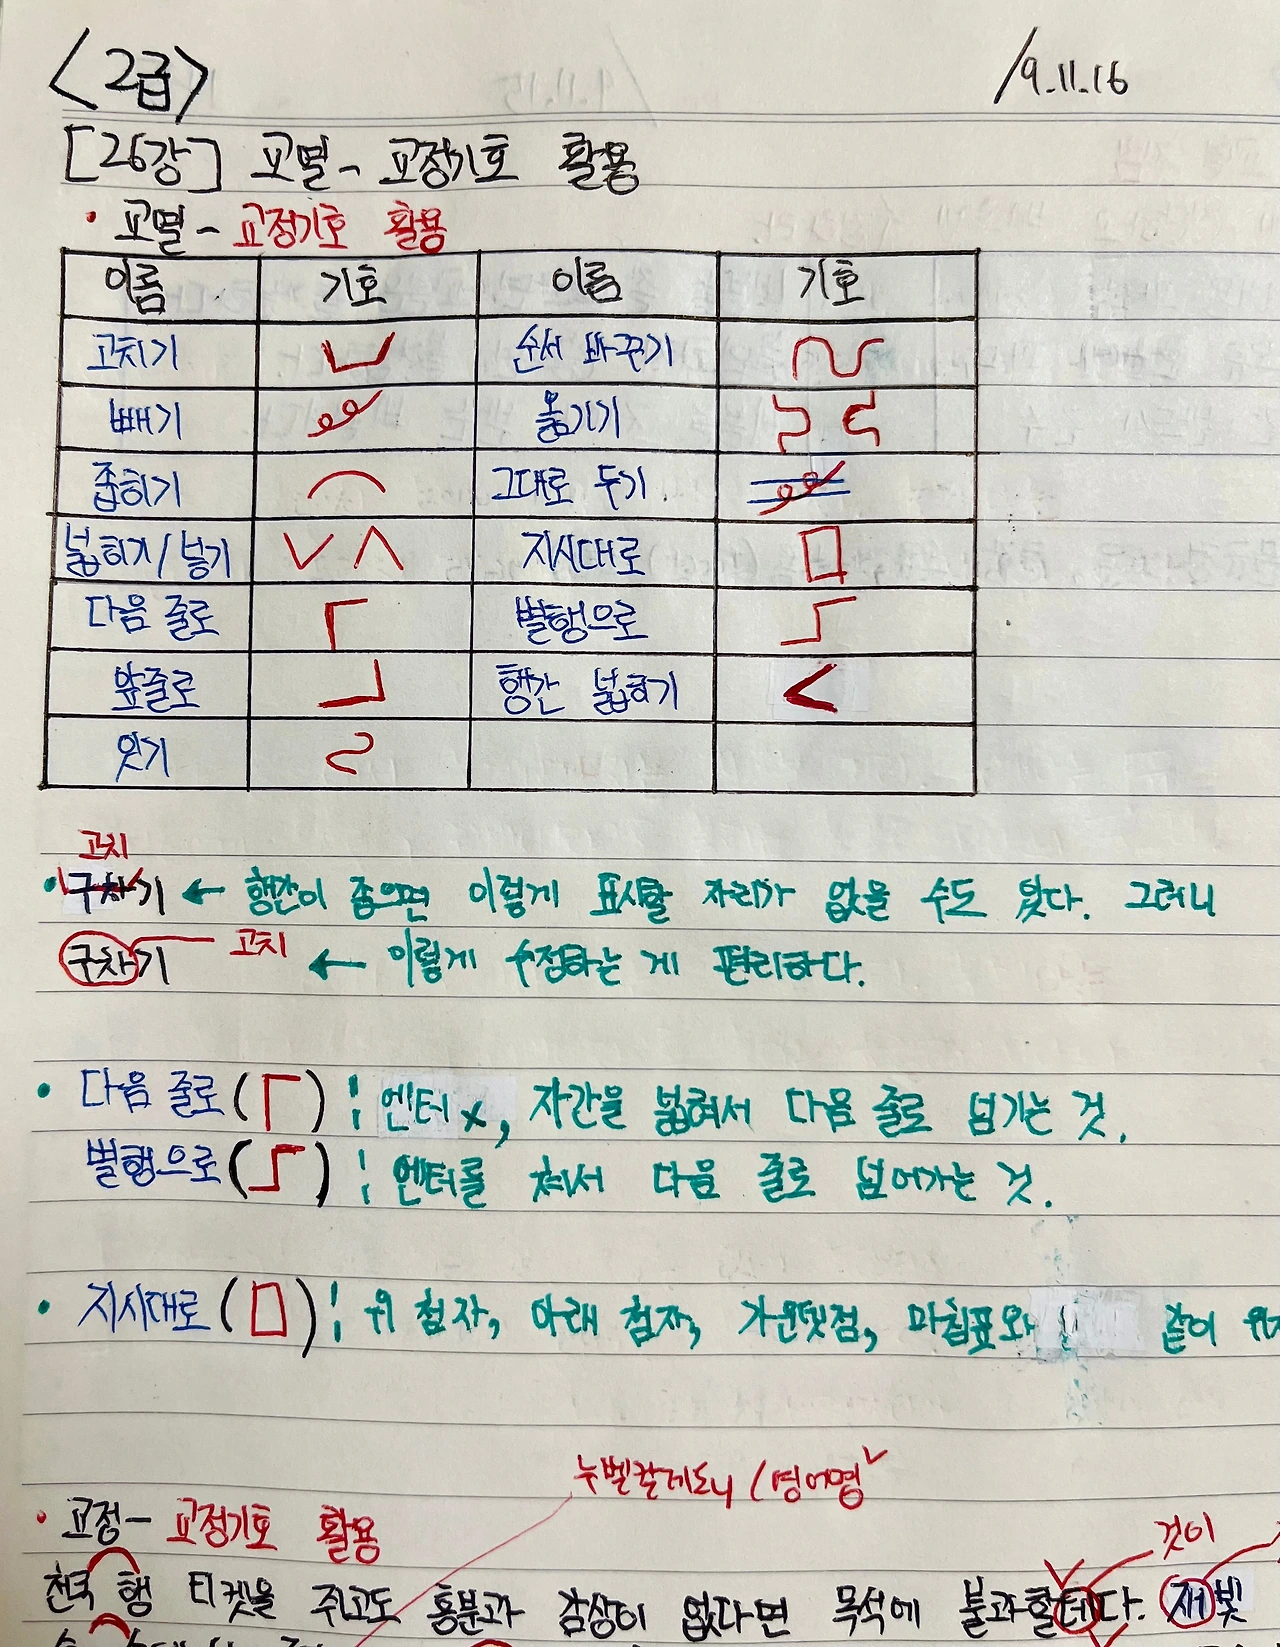 <2급>
19.11.16
[26강] 교열 - 교정기호 활용
• 교열 - 교정기호 활용
이름 기호 이름 기호
고치기 순서 바꾸기
빼기 옮기기
좁히기 그대로 두기
넓히기/넣기 지시대로
다음 줄로 별행으로
앞줄로 행간 넓히기
잇기
고치
• 구차기 ← 행간이 좁으면 이렇게 표시할 자리가 없을 수도 있다. 그러니
구차기 고치 ← 이렇게 수정하는 게 편리하다.
• 다음 줄로 ( ) : 엔터 x, 자간을 넓혀서 다음 줄로 넘기는 것.
별행으로 ( ) : 엔터를 쳐서 다음 줄로 넘어가는 것.
• 지시대로 ( ) : 위 첨자, 아래 첨자, 가운뎃점, 마침표와 같이
누벨칼레도니 (영어명
• 교정 - 교정기호 활용
것이
천국 행 티켓을 쥐고도 흥분과 감상이 없다면 목석에 불과할테다. 재빛